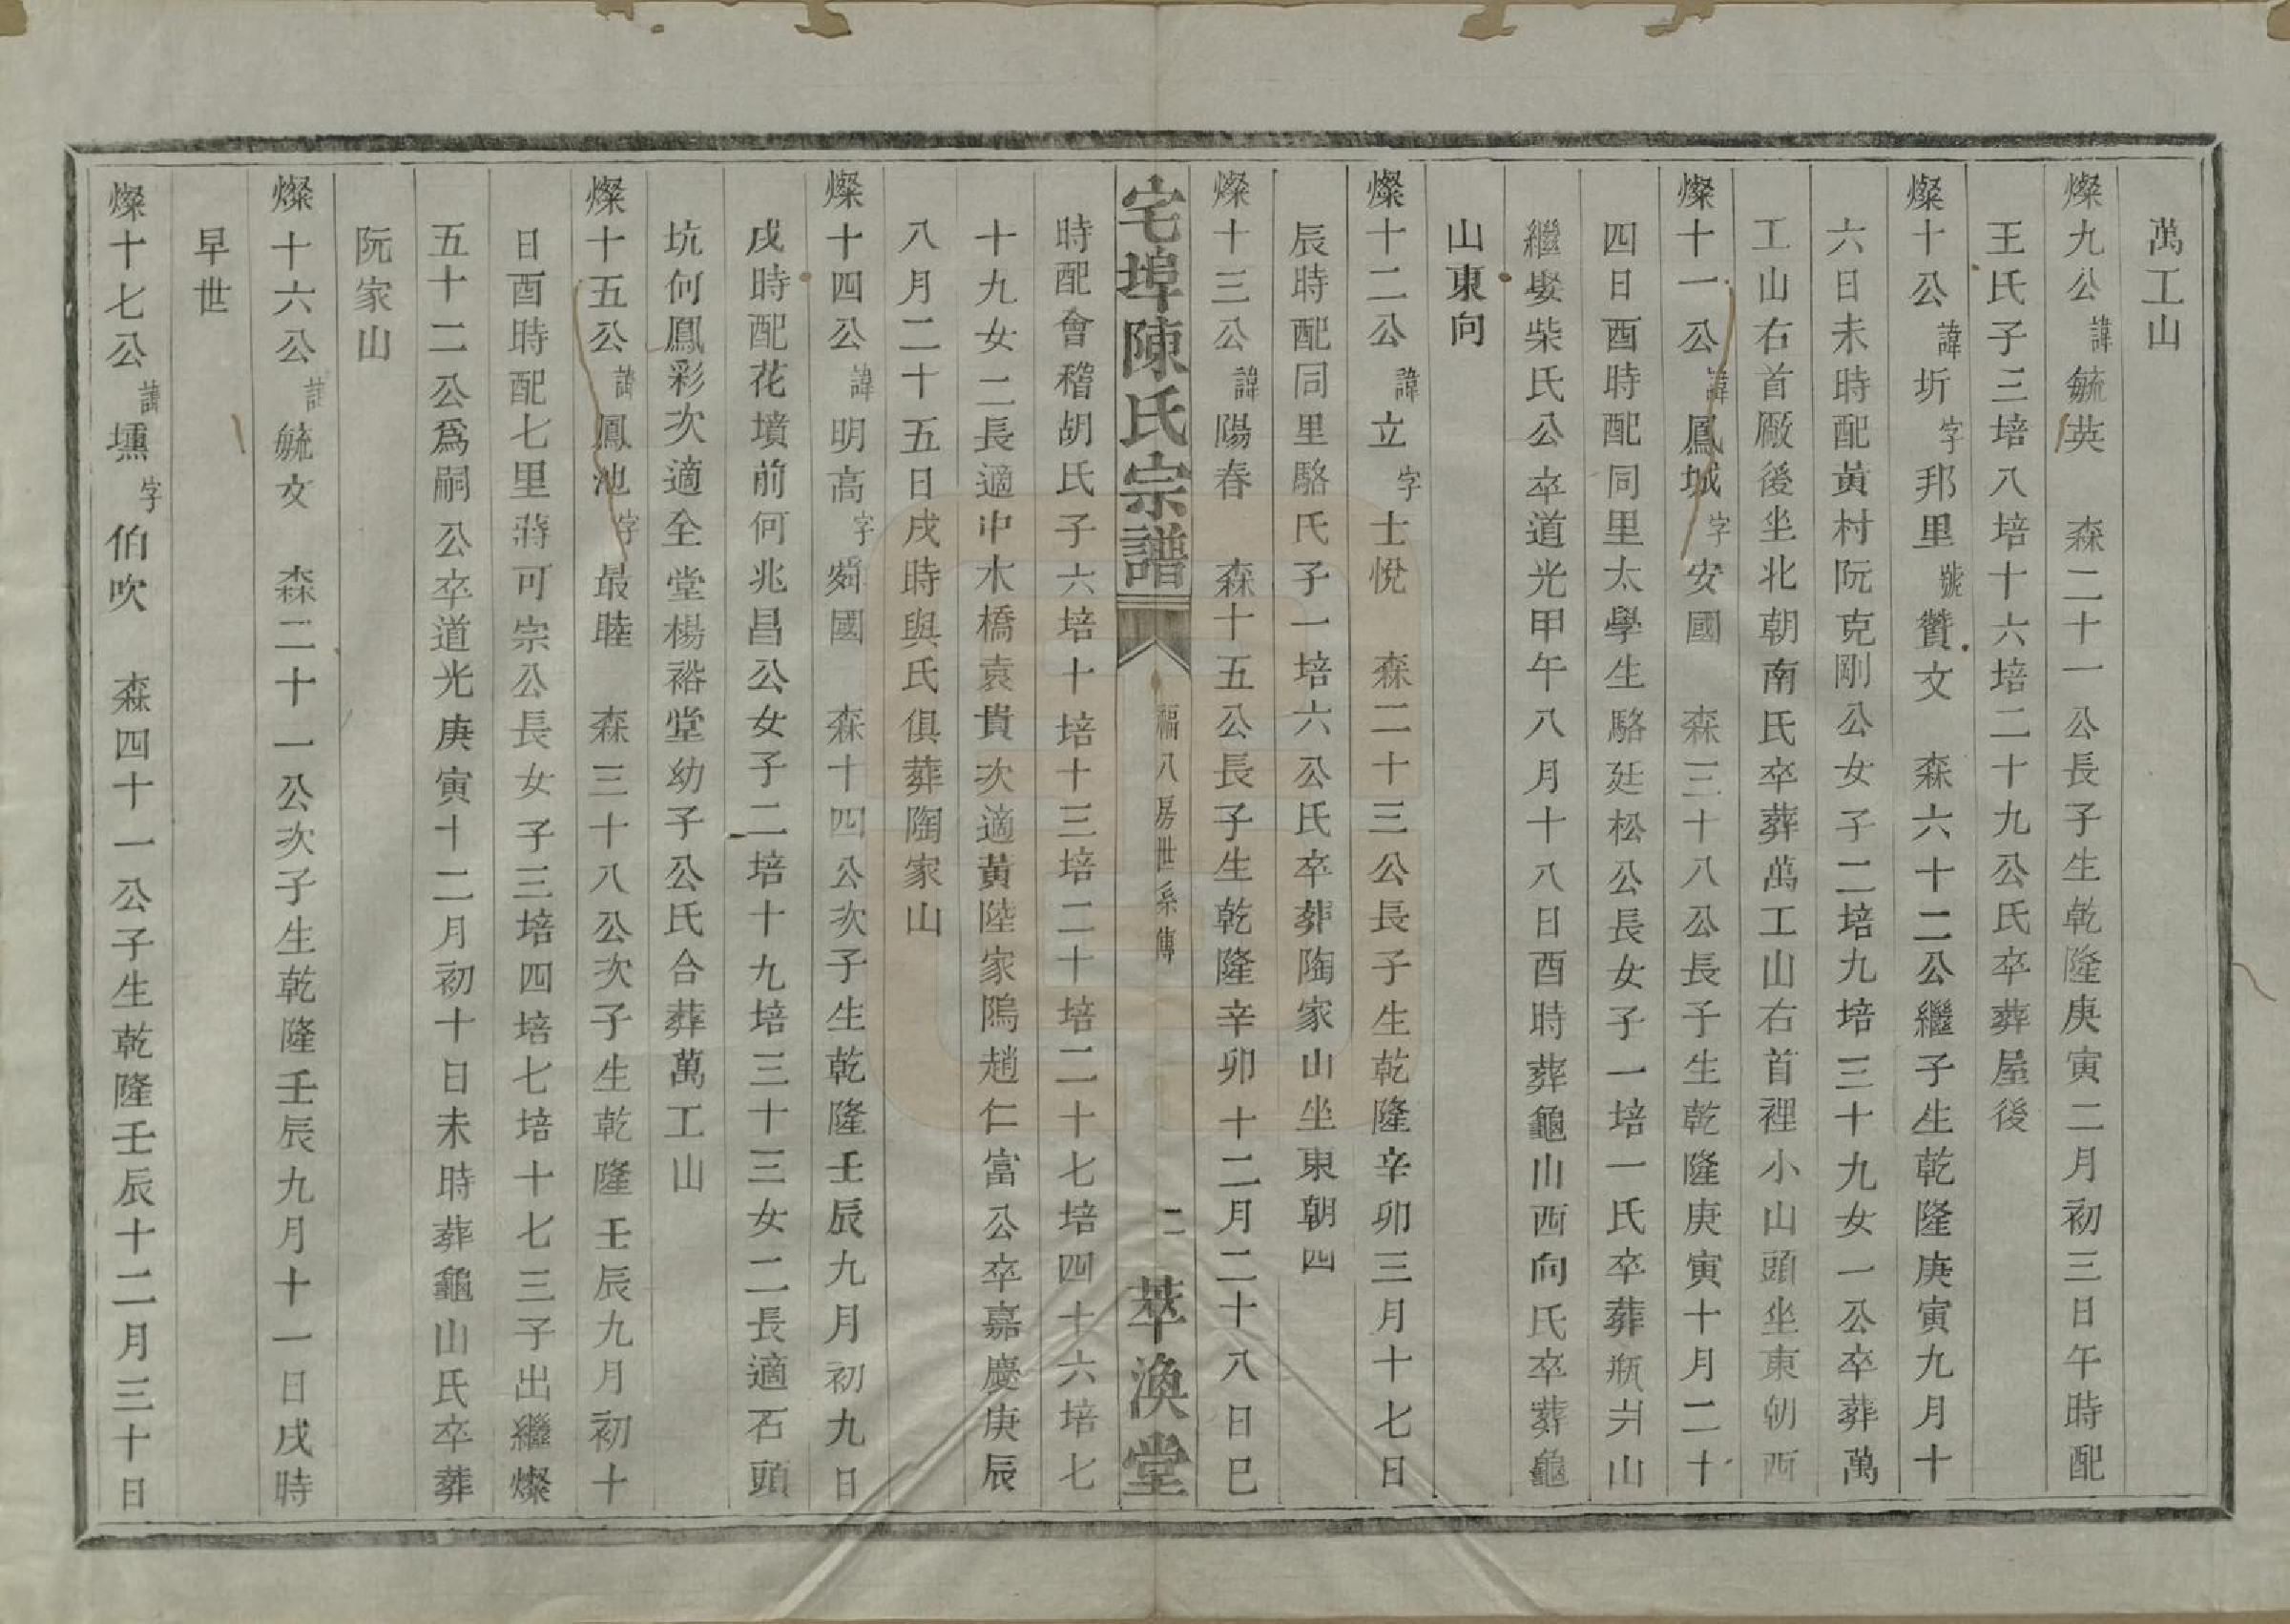 萬工山
燦九公諱毓英　森二十一公長子生乾隆庚寅二月初三日午時配
王氏子三培八培十六培二十九公氏卒葬屋後
燦十公諱圻字邦里號贊文　森六十二公繼子生乾隆庚寅九月十
六日未時配黃村阮克剛公女子二培九培三十九女一公卒葬萬
工山右首廠後坐北朝南氏卒葬萬工山右首裡小山頭坐東朝西
燦十一公諱鳳城字安國　森三十八公長子生乾隆庚寅十月二十
四日酉時配同里太學生駱廷松公長女子一培一氏卒葬瓶爿山
繼娶柴氏公卒道光甲午八月十八日酉時葬龜山西向氏卒葬龜
山東向
燦十二公諱立字士悅　森二十三公長子生乾隆辛卯三月十七日
辰時配同里駱氏子一培六公氏卒葬陶家山坐東朝四
燦十三公諱陽春　森十五公長子生乾隆辛卯十二月二十八日巳
宅埠陳氏宗譜　福八房世系傳　二　萃渙堂
時配會稽胡氏子六培十培十三培二十培二十七培四十六培七
十九女二長適中水橋袁貴次適黃陸家隖趙仁富公卒嘉慶庚辰
八月二十五日戌時與氏俱葬陶家山
燦十四公諱明高字舜國　森十四公次子生乾隆壬辰九月初九日
戌時配花墳前何兆昌公女子二培十九培三十三女二長適石頭
坑何鳳彩次適全堂楊裕堂幼子公氏合葬萬工山
燦十五公諱鳳池字最睦　森三十八公次子生乾隆壬辰九月初十
日酉時配七里蔣可宗公長女子三培四培七培十七三子出繼燦
五十二公爲嗣公卒道光庚寅十二月初十日未時葬龜山氏卒葬
阮家山
燦十六公諱毓文　森二十一公次子生乾隆壬辰九月十一日戌時
早世
燦十七公諱壎字伯吹　森四十一公子生乾隆壬辰十二月三十日